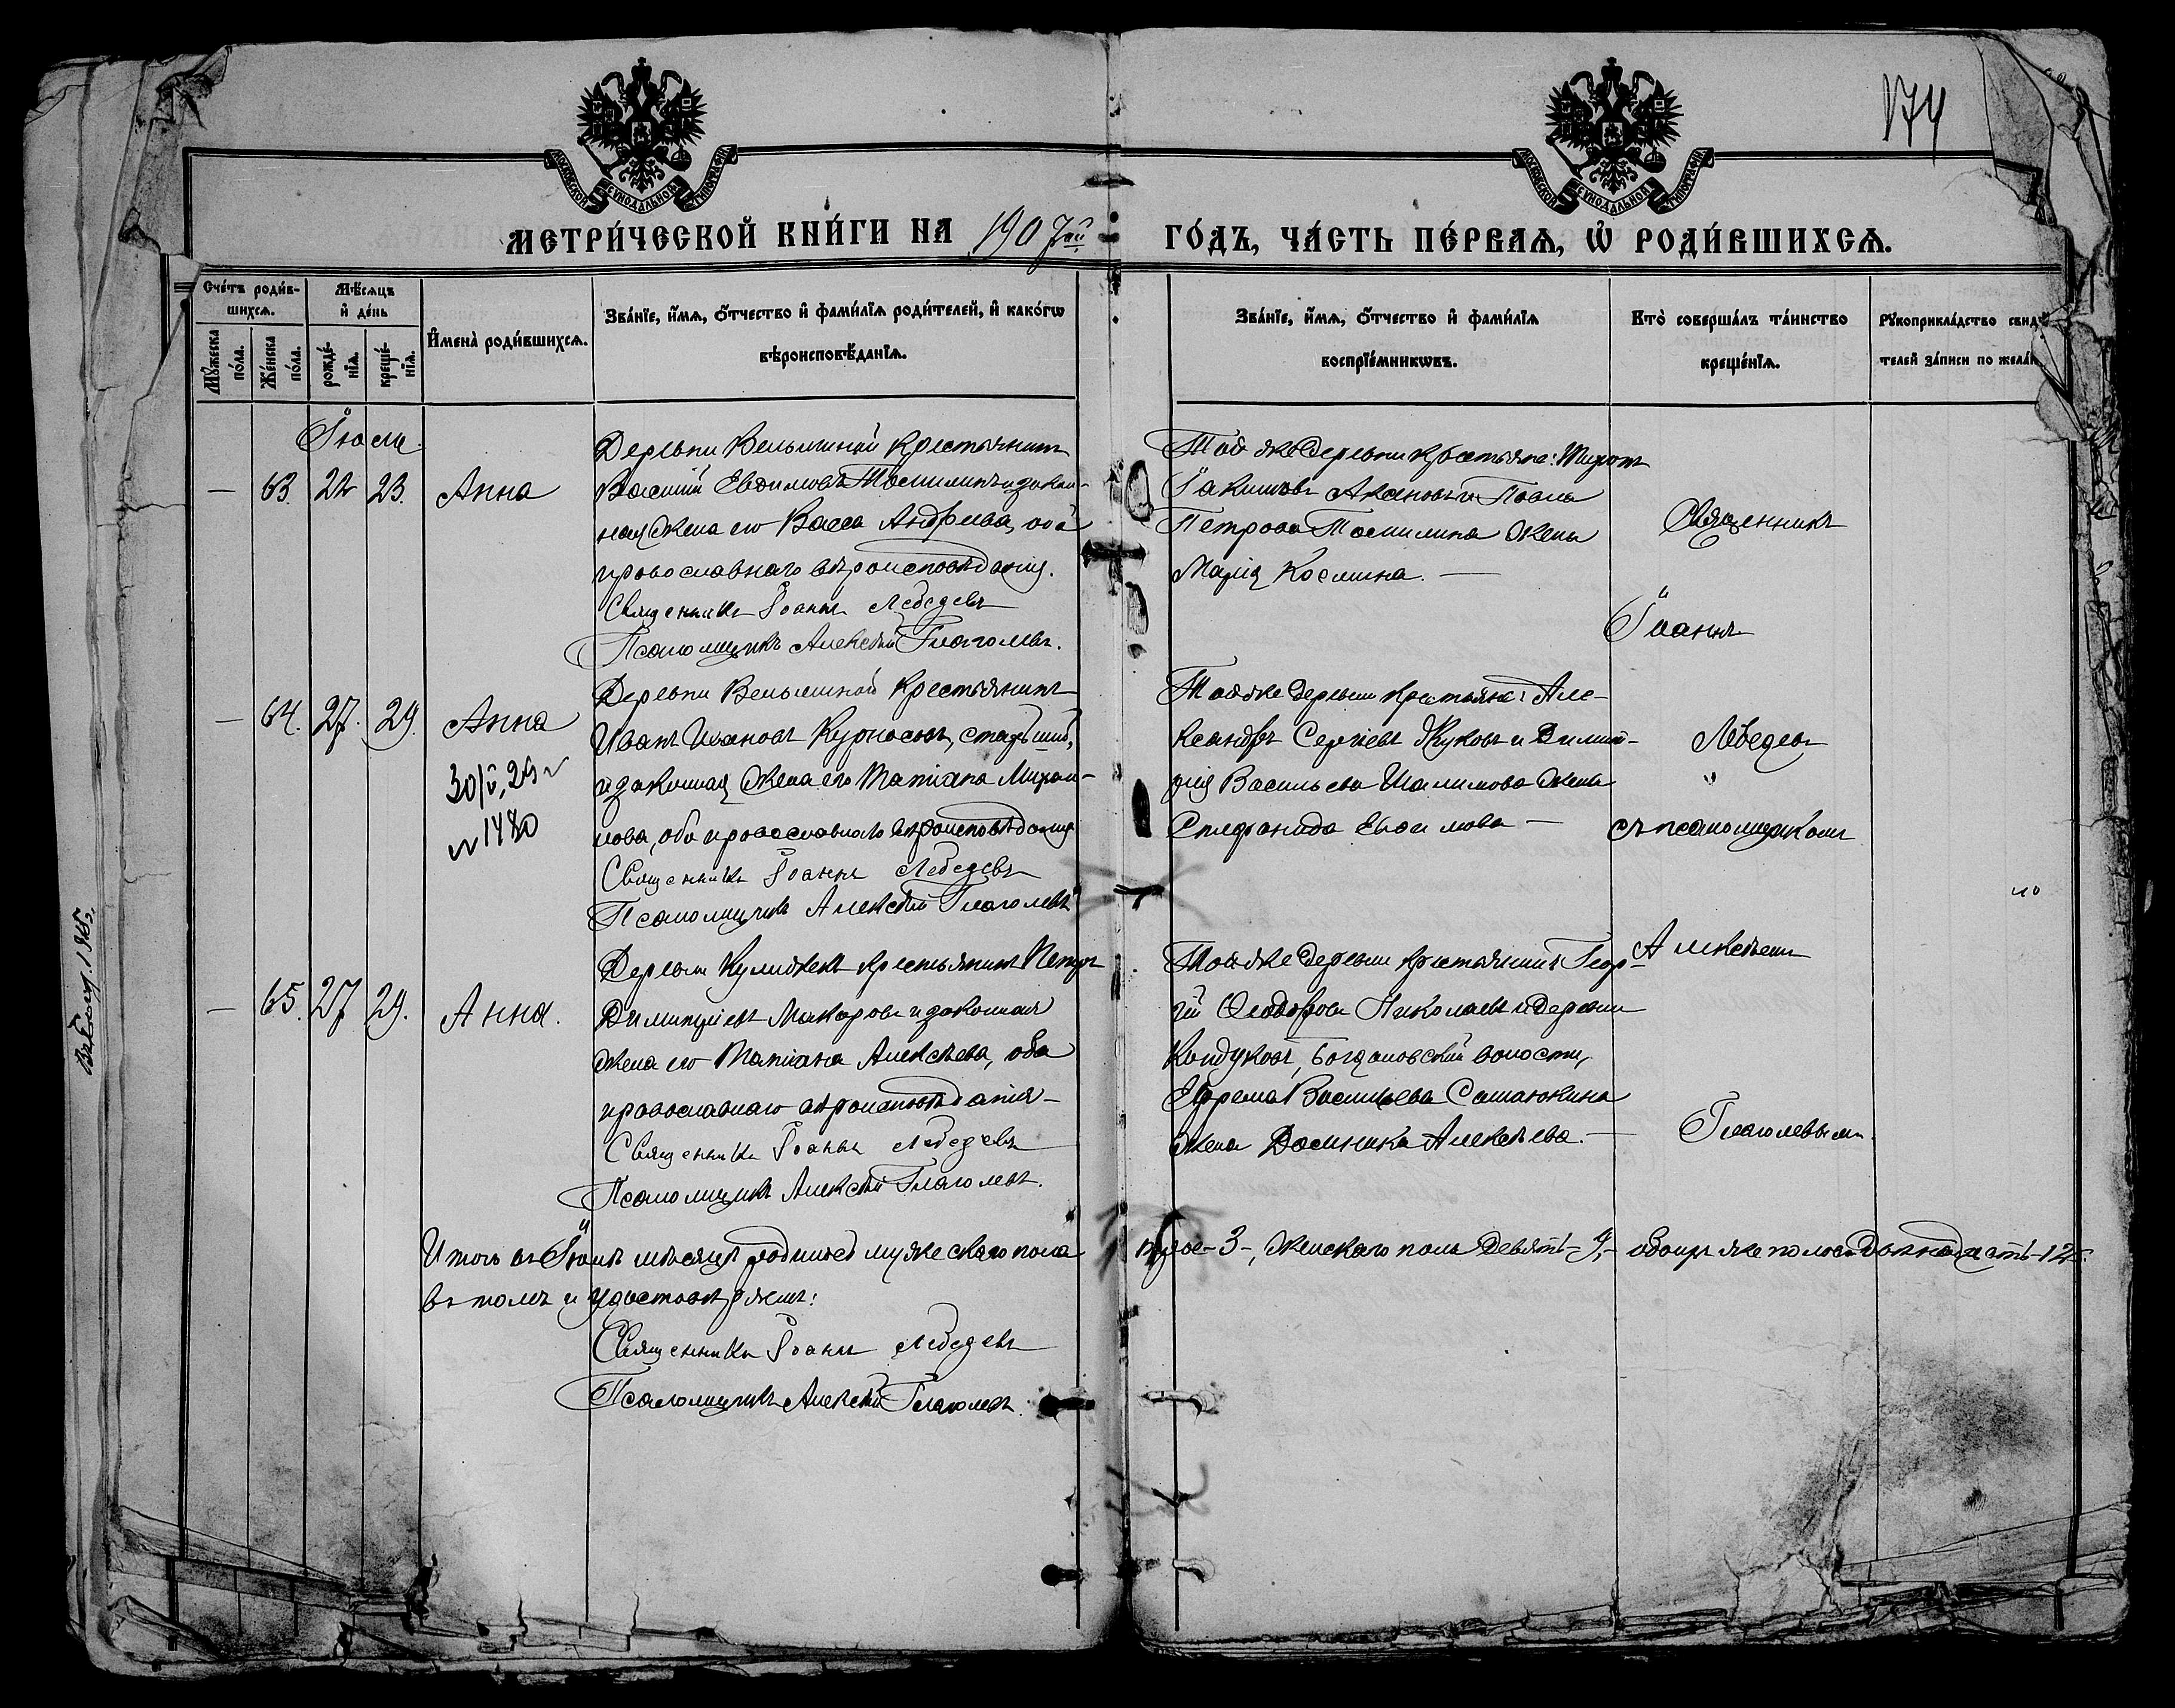 174
МОСКОВСКОЙ СУНОДАЛЬНОЙ ТИПОГРАФІИ
МОСКОВСКОЙ СУНОДАЛЬНОЙ ТИПОГРАФІИ
МЕТРИ́ЧЕСКОЙ КНИ́ГИ НА 1907ой ГО́ДЪ, ЧА́СТЬ ПЕ́РВАѦ, Ѡ РОДИ́ВШИХСѦ.
Сче́тъ роди́в-
шихсѧ.
Мꙋ́жеска по́ла.
Же́нска по́ла.
Мѣ́сѧцъ
и҆ де́нь
рожде́-
нїѧ.
креще́-
нїѧ.
И҆мена̀ роди́вшихсѧ.
Зва́нїе, и҆́мѧ, ѻ҆́тчество и҆ фами́лїѧ роди́телей, и҆ како́гѡ
вѣроисповѣ́данїѧ.
Зва́нїе, и҆́мѧ, ѻ҆́тчество и҆ фами́лїѧ
воспрїе́мникѡвъ.
Кто̀ соверша́лъ та́инство
креще́нїѧ.
Рꙋкоприкла́дство свид
телей за́писи по жела́
Іюль.
— 63. 22 23. Анна
Деревни Вельминой крестьянинъ
Василій Евѳимовъ Томилинъ и закон-
ная жена его Васса Андреева, оба
православнаго вѣроисповѣданія.
Священникъ Іоаннъ Лебедевъ
Псаломщикъ Алексѣй Глаголевъ.
Той же деревни крестьяне:
Іакимовъ и Павла
Петрова Томилина жена
Марія Космина. —
— 64. 27. 29. Анна
30/V, 29 г
№ 1480
Деревни Вельминой крестьянинъ
Иванъ Ивановъ Курносовъ, старшій,
и законная жена его Татіана Михаи-
лова, оба православнаго вѣроисповѣданія
Священникъ Іоаннъ Лебедевъ
Псаломщикъ Алексѣй Глаголевъ
Той же деревни крестьяне: Але-
ксандръ Сергіевъ Жуковъ и Димит-
рія Васильева Шалимова жена
Стефанида Евѳимова —
— 65. 27 29. Анна.
Деревни крестьянинъ Петръ
Димитріевъ Макаровъ и законная
жена его Татіана Алексѣева, оба
православнаго вѣроисповѣданія —
Священникъ Іоаннъ Лебедевъ
Псаломщикъ Алексѣй Глаголевъ.
Той же деревни крестьянинъ Геор-
гій Ѳеодоровъ Николаевъ и деревни
Богдановской волости,
Ефрема Васильева
жена Домника Алексѣева. —
Священникъ
Іоаннъ
Лебедевъ
съ псаломщикомъ
Алексѣемъ
Глаголевымъ.
Итого въ Іюлѣ мѣсяцѣ родилось мужескаго пола трое – 3 –, женскаго пола девять – 9, – обоихъ же половъ двѣнадцать – 12.
въ томъ и удостовѣряемъ:
Священникъ Іоаннъ Лебедевъ
Псаломщикъ Алексѣй Глаголевъ.